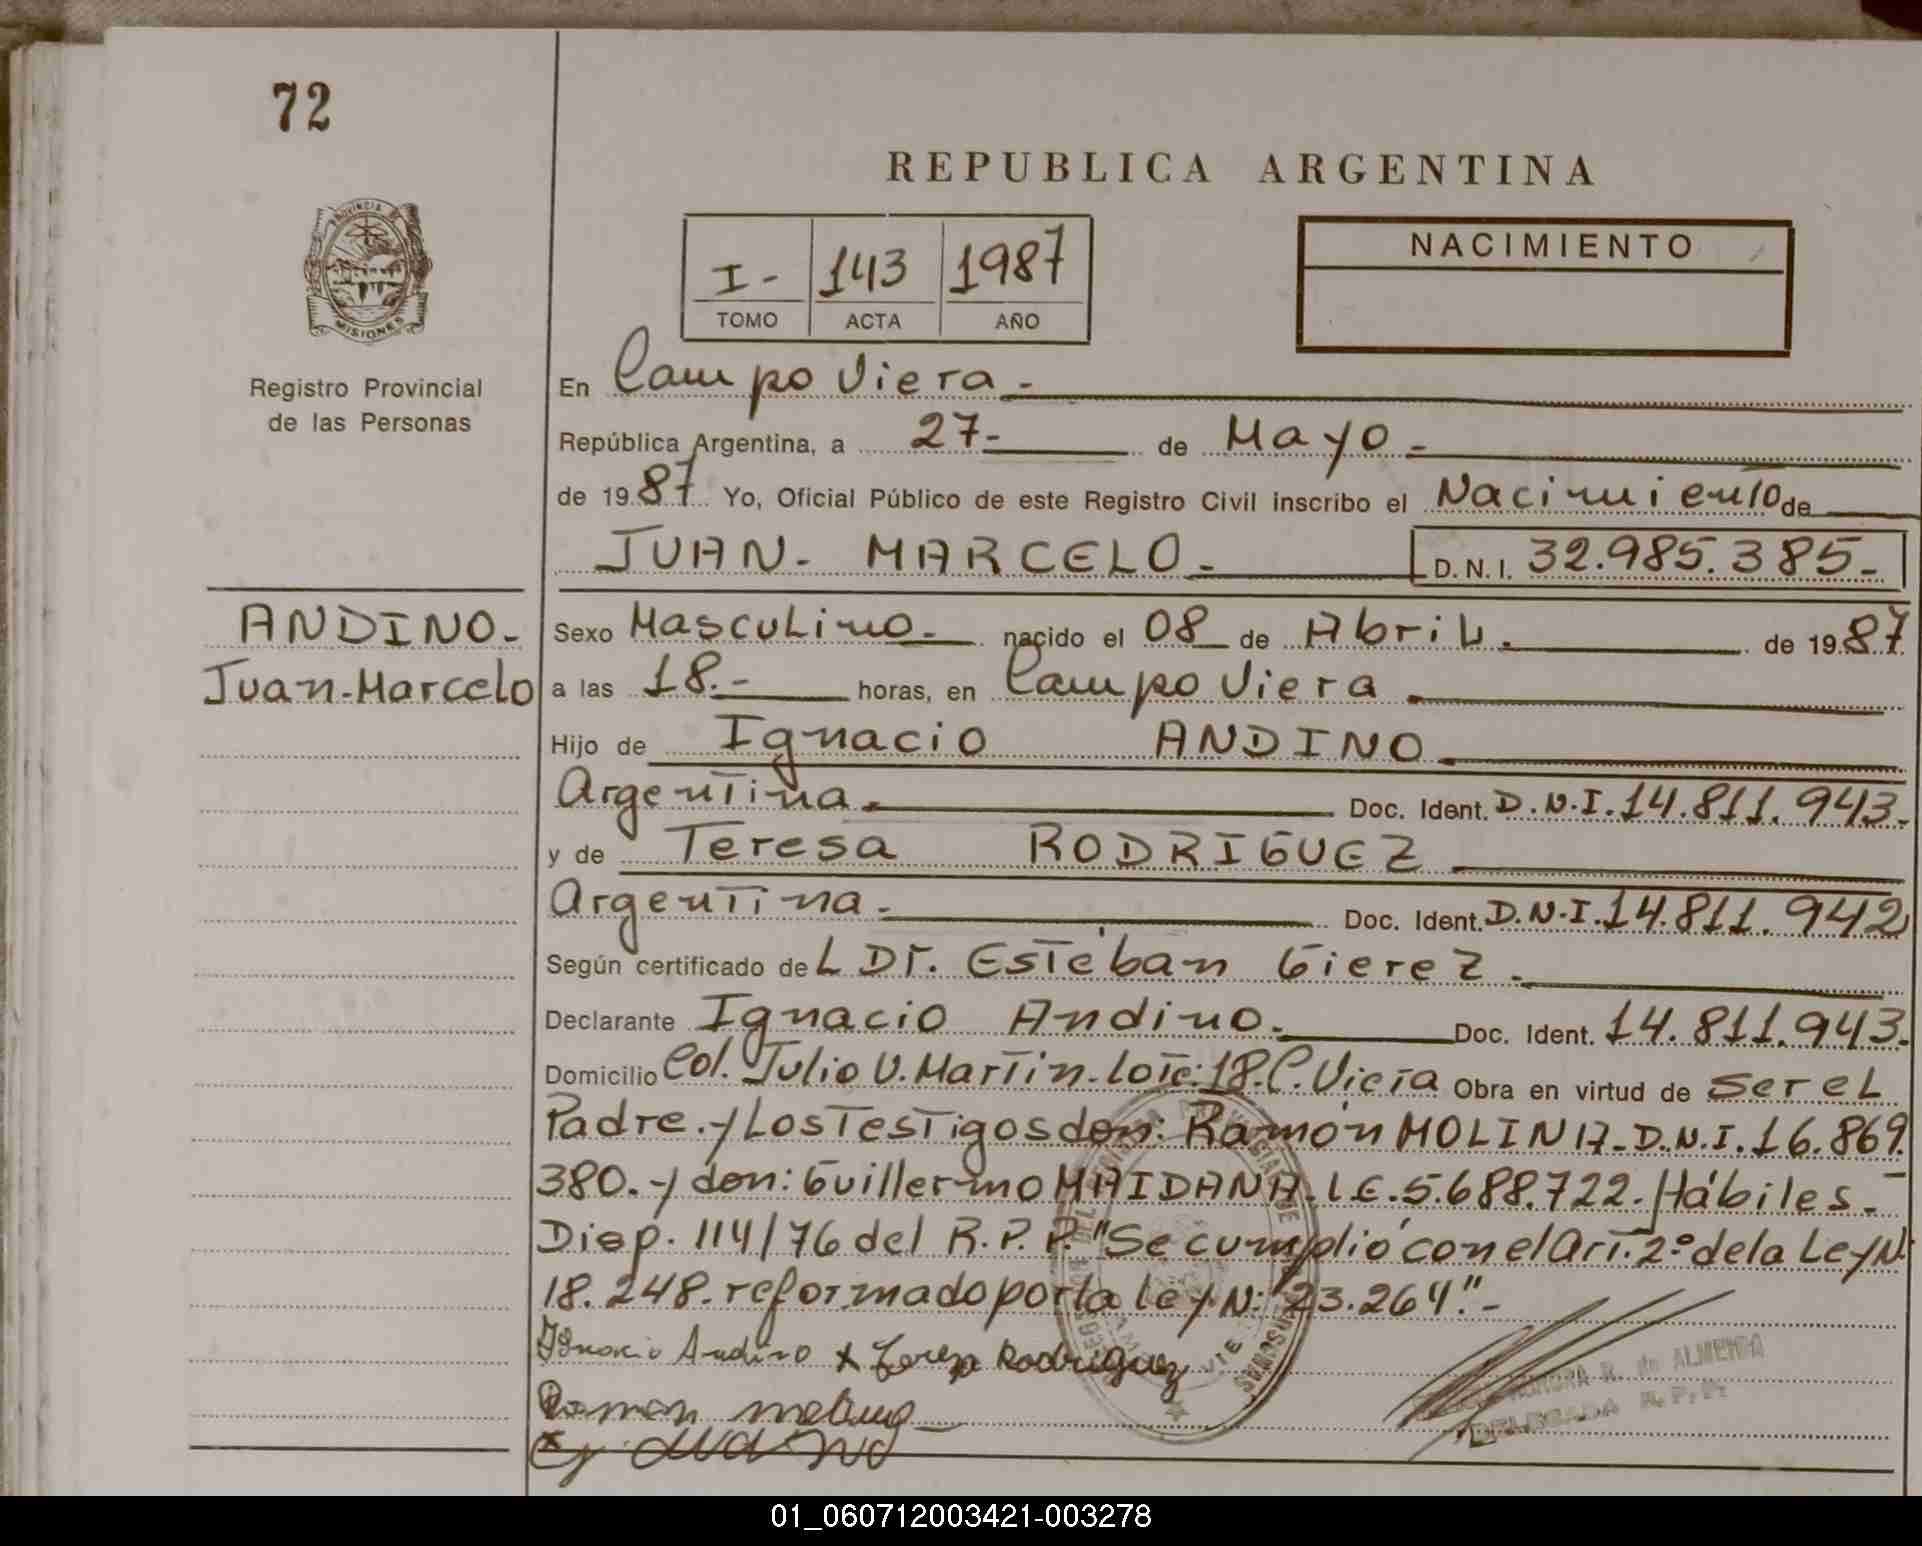 72
REPUBLICA ARGENTINA
PROVINCIA
MISIONES
Registro Provincial
de las Personas
I- 143 1987
TOMO ACTA AÑO
NACIMIENTO
En Campo Viera.-
República Argentina, a 27- de Mayo-
de 1987 Yo, Oficial Público de este Registro Civil inscribo el Nacimiento de
JUAN- MARCELO.- D.N.I. 32.985.385-
ANDINO.-
Juan-Marcelo
Sexo Masculino.- nacido el 08 de Abril. de 1987
a las 18.- horas, en Campo Viera.
Hijo de Ignacio ANDINO.
Argentina. Doc. Ident. D.N.I.14.811.943.
y de Teresa RODRIGUEZ
Argentina.- Doc. Ident. D.N.I.14.811.942
Según certificado deL Dr. Esteban Gierez.
Declarante Ignacio Andino. Doc. Ident. 14.811.943.
Domicilio Col. Julio U. Martin-Lote:18.C.Viera Obra en virtud de Ser eL
Padre.-y Los Testigos don: Ramón MOLINA-D.N.I.16.869.
380.-y don: Guillermo MAIDANA.L.E.5.688.722.Hábiles.-
Disp. 114/76 del R.P.P. "Se cumplió con el Art. 2º de la Ley N:
18.248.reformado por la Ley N: 23.264".-
Ignacio Andino x Teresa Rodriguez
Ramon molina
R. de ALMEIDA
DELEGADA R.P.P.
01_060712003421-003278